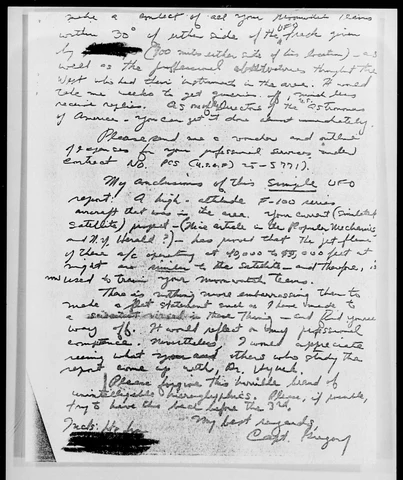 make a contact of all your moonwatch teams
within 30° of either side of the UFO track given
by (800 miles either side of his location) - as
well as the professional observatories throughout the
West who had their instruments in the area. It would
take me weeks to get given off, much less
receive replies. As one of Directors of the "Astronomers
of America - you can get it done almost immediately.
Please send me a voucher and outline
of expenses for your professional services under
contract No. PCS (U.S.A.F) 25-5771).
My conclusions of this simple UFO
report: A high-altitude F-100 series
aircraft that was in the area. Your current (Simulated
Satellite) project - (This article in the Popular Mechanics
and N.Y. Herald?) - has proved that the jet plume
of these a/c operating at 40,000 to 55,000 feet at
night are similar to the satellite - and therefore, is
used to train your moonwatch teams.
There is nothing more embarrassing than to
make a flat statement such as I have made in
a scientist in these things - and find you're
way off. It would reflect on my professional
competence. Nonetheless, I would appreciate
seeing what you and others who study the
report come up with, Dr. Hynek.
Please forgive this terrible brand of
unintelligible hieroglyphics. Please, if possible,
try to have this back before the 3rd.
My best regards,
Capt. Gregory